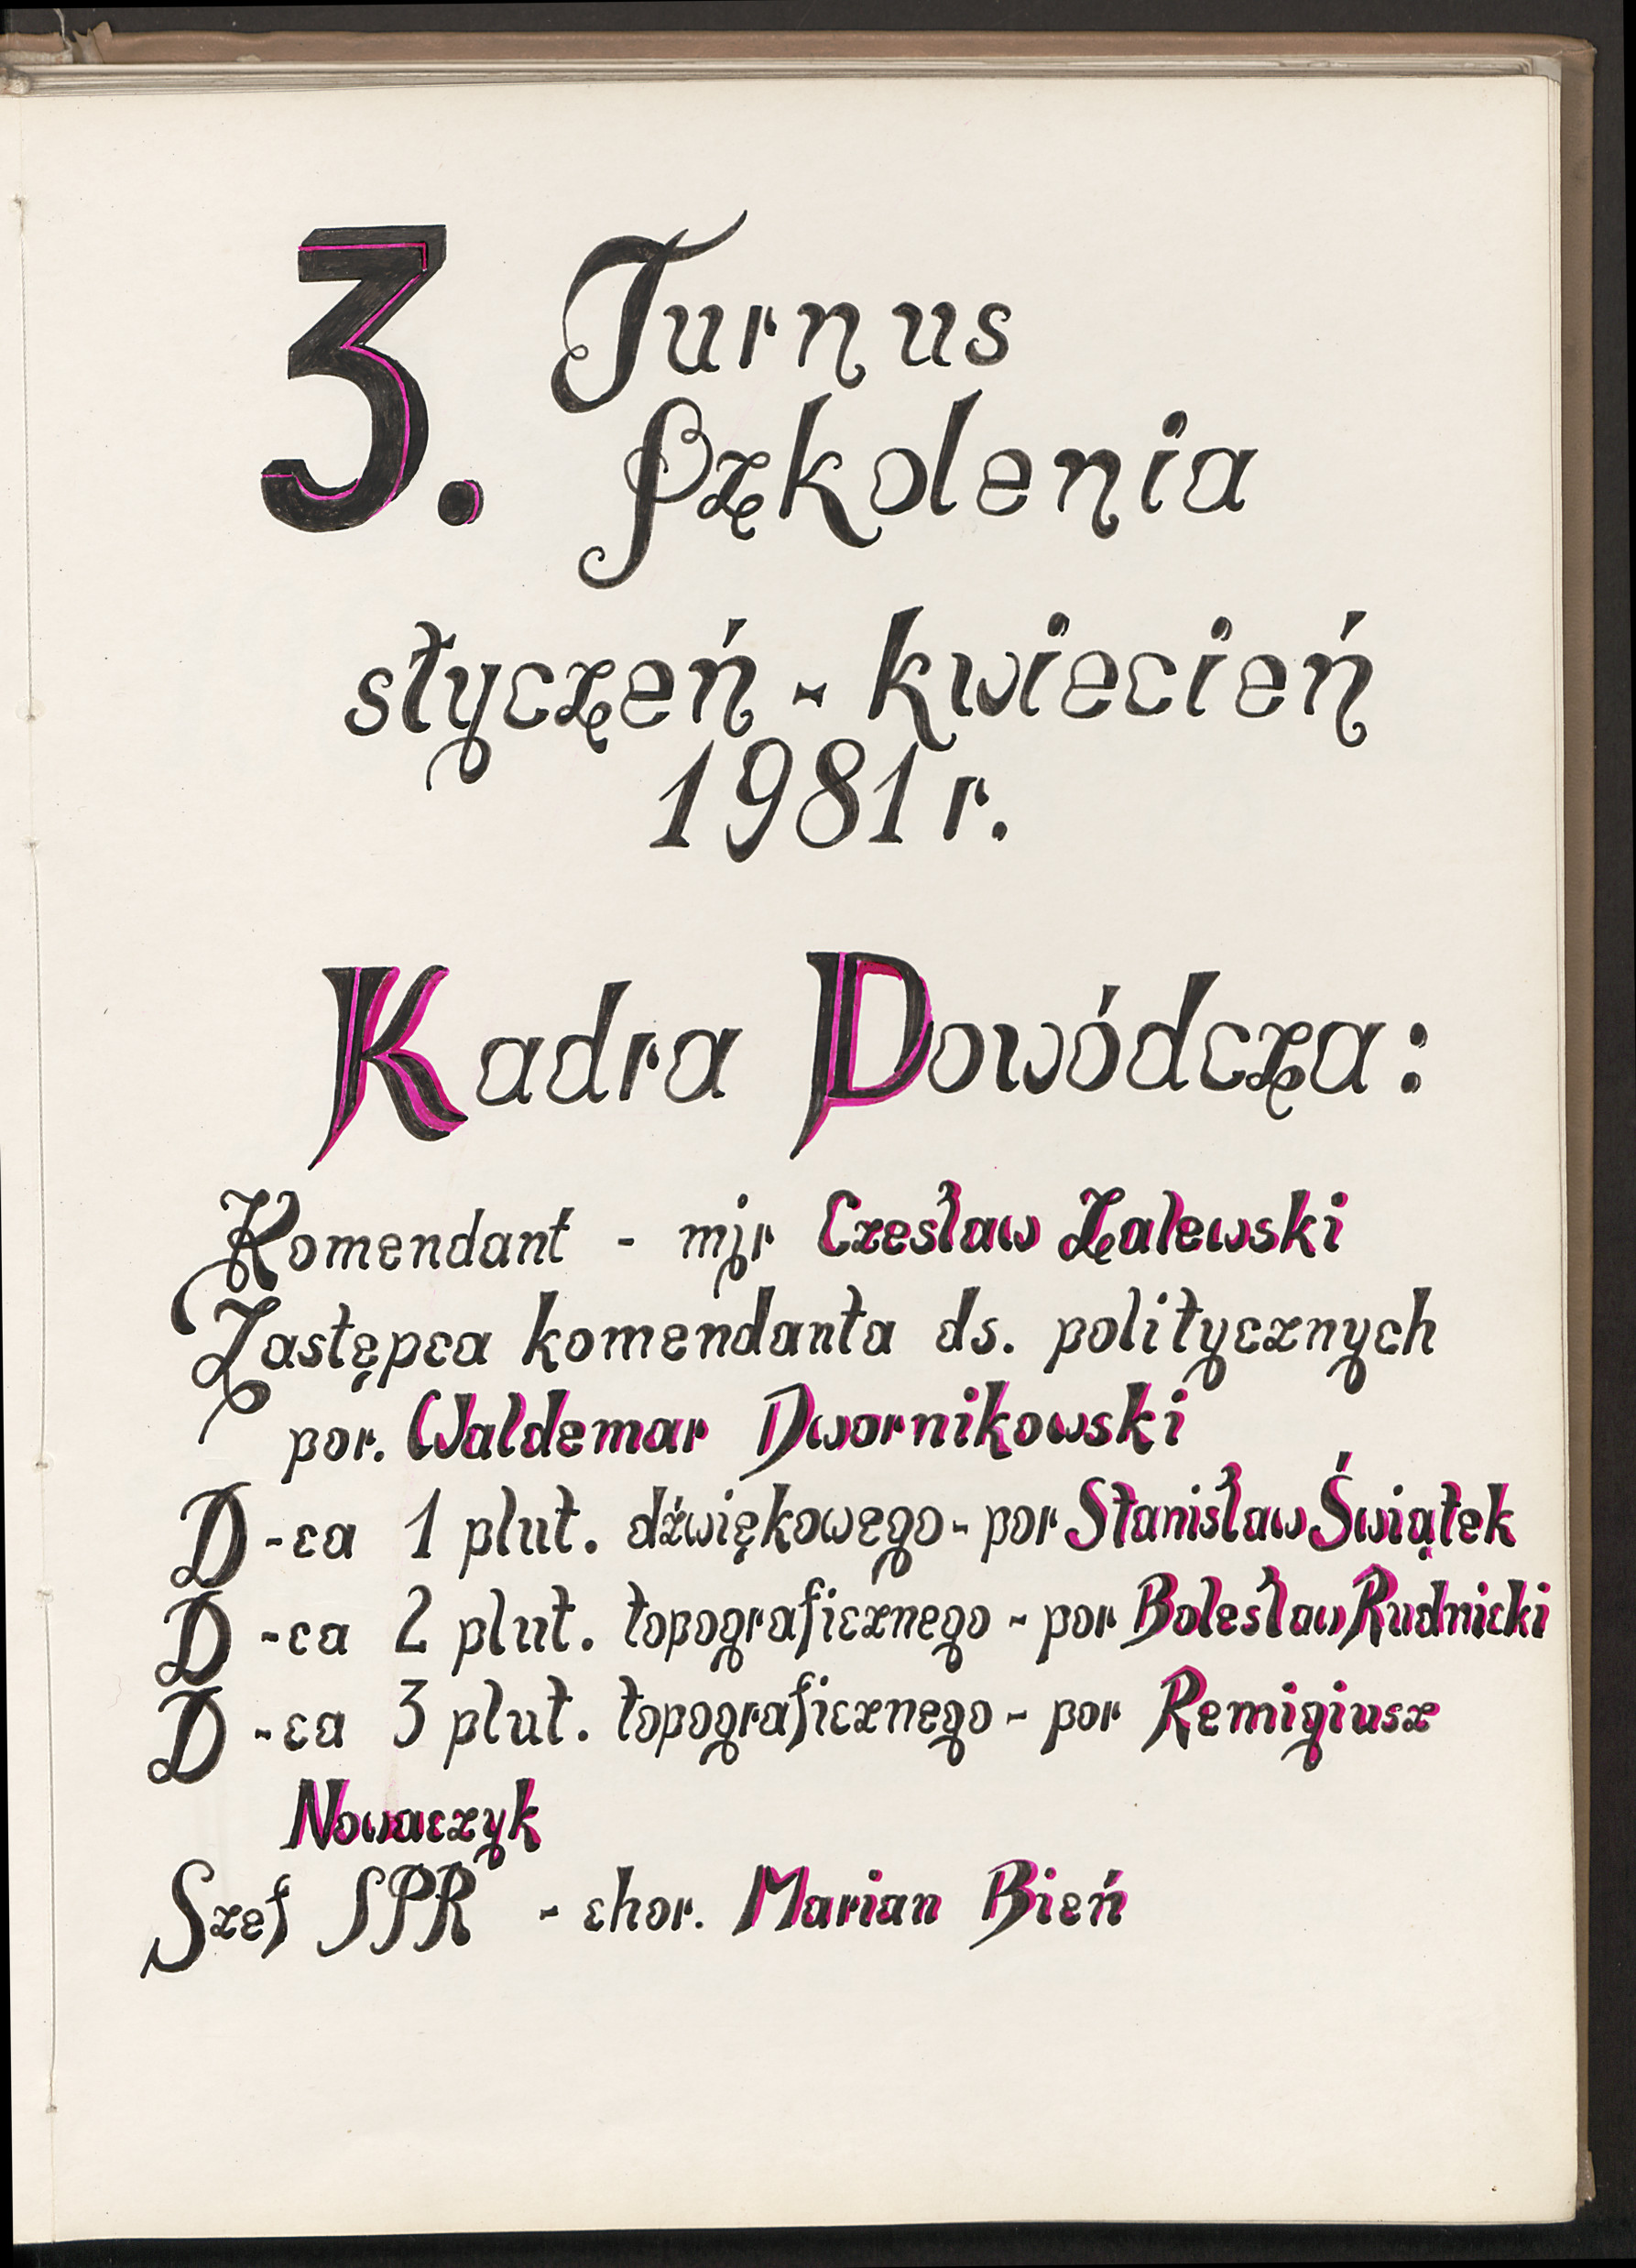 3. Turnus
Szkolenia
styczeń - kwiecień
1981 r.
Kadra Dowódcza:
Komendant - mjr Czesław Zalewski
Zastępca komendanta ds. politycznych
por. Waldemar Dwornikowski
D-ca 1 plut. dźwiękowego - por Stanisław Świątek
D-ca 2 plut. topograficznego - por Bolesław Rudnicki
D-ca 3 plut. topograficznego - por Remigiusz
Nowaczyk
Szef SPR - chor. Marian Bień